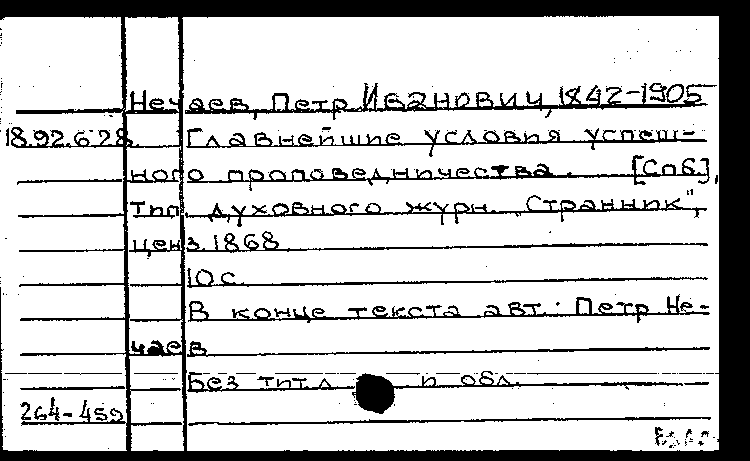 Нечаев, Петр Иванович, 1842-1905
18.92.6.28 Главнейшие условия успеш-
ного проповедничества. [Спб],
тип. духовного журн. "Странник",
ценз. 1868
10 с.
В конце текста авт.: Петр Не-
чаев
Без тит. л и обл.
264-459